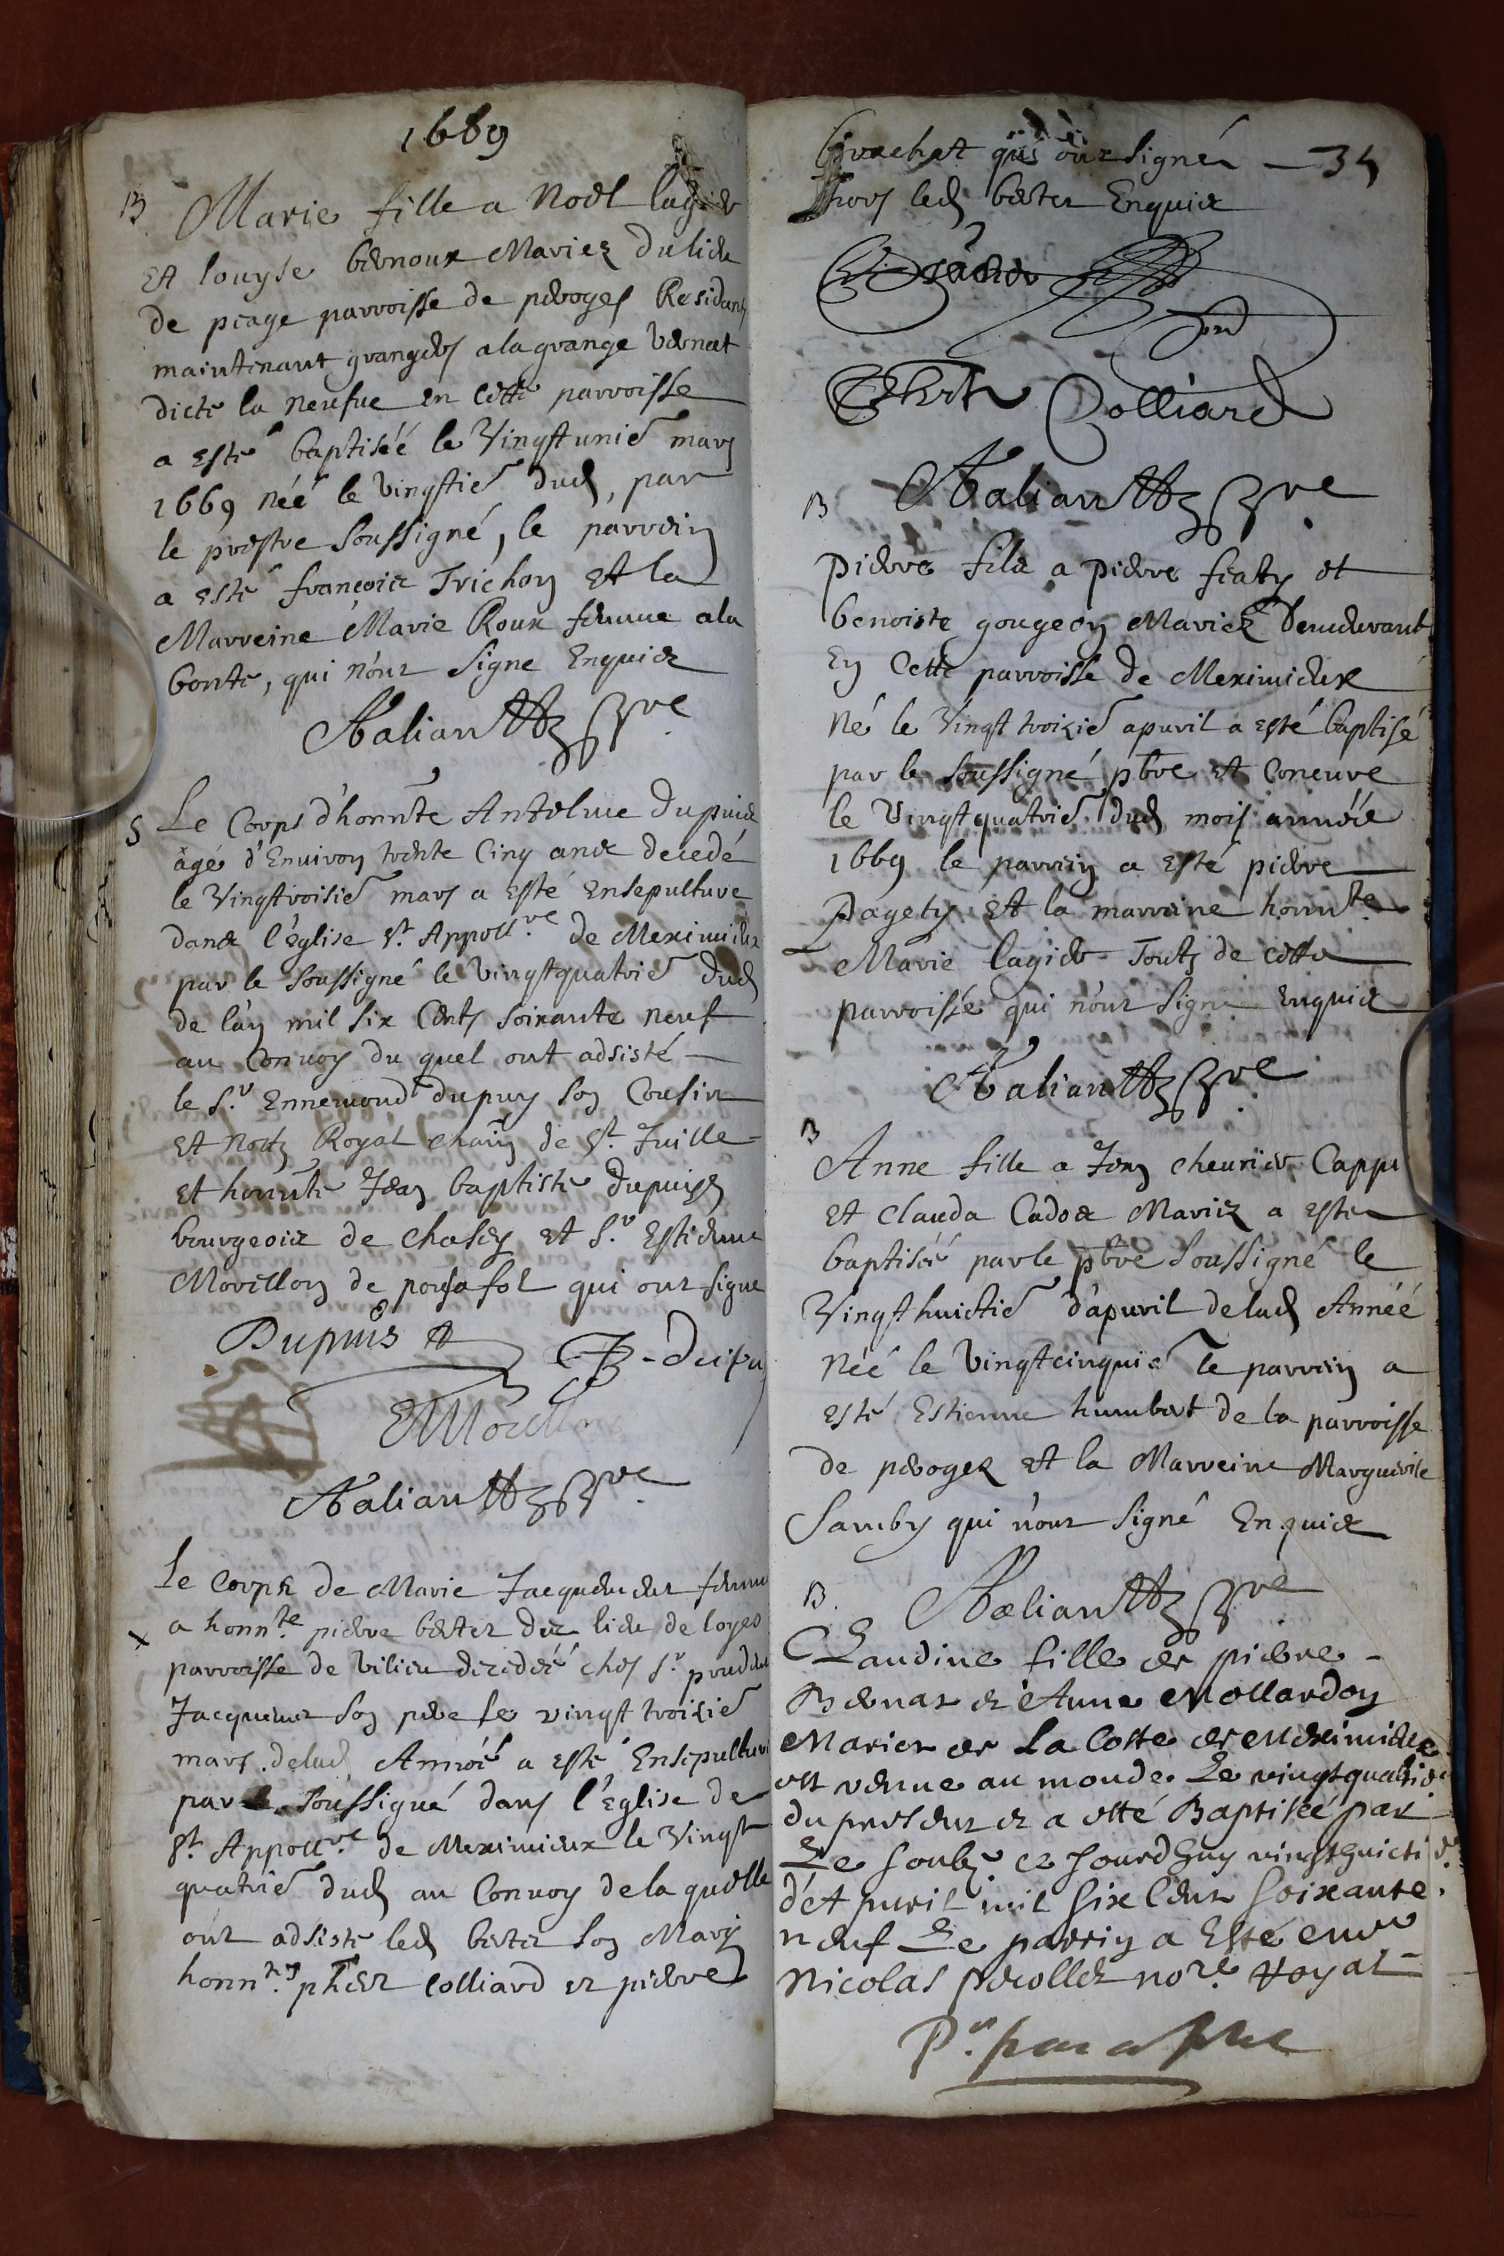 1669
B Marie fille a Noel lagier
Et louyse bernoux Mariez du lieu
de peage parroisse de peroges Residans
maintenant grangers a la grange vernat
dicte la neufue en cette parroisse
a esté baptiséé le Vingtunié mars
1669 néé le vingtié dud, par
le prestre soussigné, le parrein
a esté françois Trichon Et la
Marreine Marie Roux femme a la
bonte, qui n'ont signe Enquis
Haliantz pbre
S Le Corps d'honnte Antelme Dupuis
âgé d'Enuiron trente Cinq ans decedé
le Vingtroisié mars a esté Ensepulture
dans l'église St Appollre de Meximieux
par le soussigné le vingtquatrié dud
de l'an mil six Cents soixante neuf
au Conuoy du quel ont adsisté
le Sr Ennemond dupuy son Cousin
Et Royal de St Juille
Et honnte Jean baptiste dupuis
bourgeois de chasey Et Sr Estienne
Morellon de qui ont signe
Dupuis
JB-dupu
EMorellon
Haliantz pbre
Le Corps de Marie Jacquemet femme
x a honnte pierre berter du lieu de loyes
parroisse de vilieu decedéé ches Sr
Jacquemet son pere le vingt troisié
mars de lad Annéé a esté Ensepulture
par le soussigné dans l'Eglise de
St Appollre de Meximieux le Vingt
quatrié dud au Conuoy de la quelle
ont adsisté led berter son Mary
honn. colliard et pierre
brachet qui ont signé 34
hors led berter Enquis
Brachet
Colliard
Haliantz pbre
B
pierre fils a pierre featy et
benoiste gougeon Mariez Demeurant
En Cette parroisse de Meximieux
Né le Vingt troisié apuril a esté baptisé
par le soussigné pbre Et Concure
le Vingtquatrié dud mois annéé
1669 le parrein a esté pierre
Pagety Et la marreine honnte
Marie lagier Touts de cette
parroisse qui n'ont signe Enquis
Haliantz pbre
B
Anne fille a Jean cheurier Cappa
Et Clauda Cados Mariez a esté
baptiséé par le pbre soussigné le
Vingthuictié d'apuril de lad Annéé
Néé le Vingtcinquié le parrein a
esté Estienne humbert de la parroisse
de peroges Et la Marreine Marguerite
Samby qui n'ont signé Enquis
Haliantz pbre
B.
Claudine fille de pierre
Bernar et Anne Mollardon
Maries de La Coste de Meximieux
est venue au monde Le vingtquatrie
du present et a esté Baptiséé par
Le soubz. et Jourdhuy vingthuictie
d'Apuril mil six Cent soixante
neuf Le parrin a Esté
Nicolas perollet nore Royal
Pr. paraphe